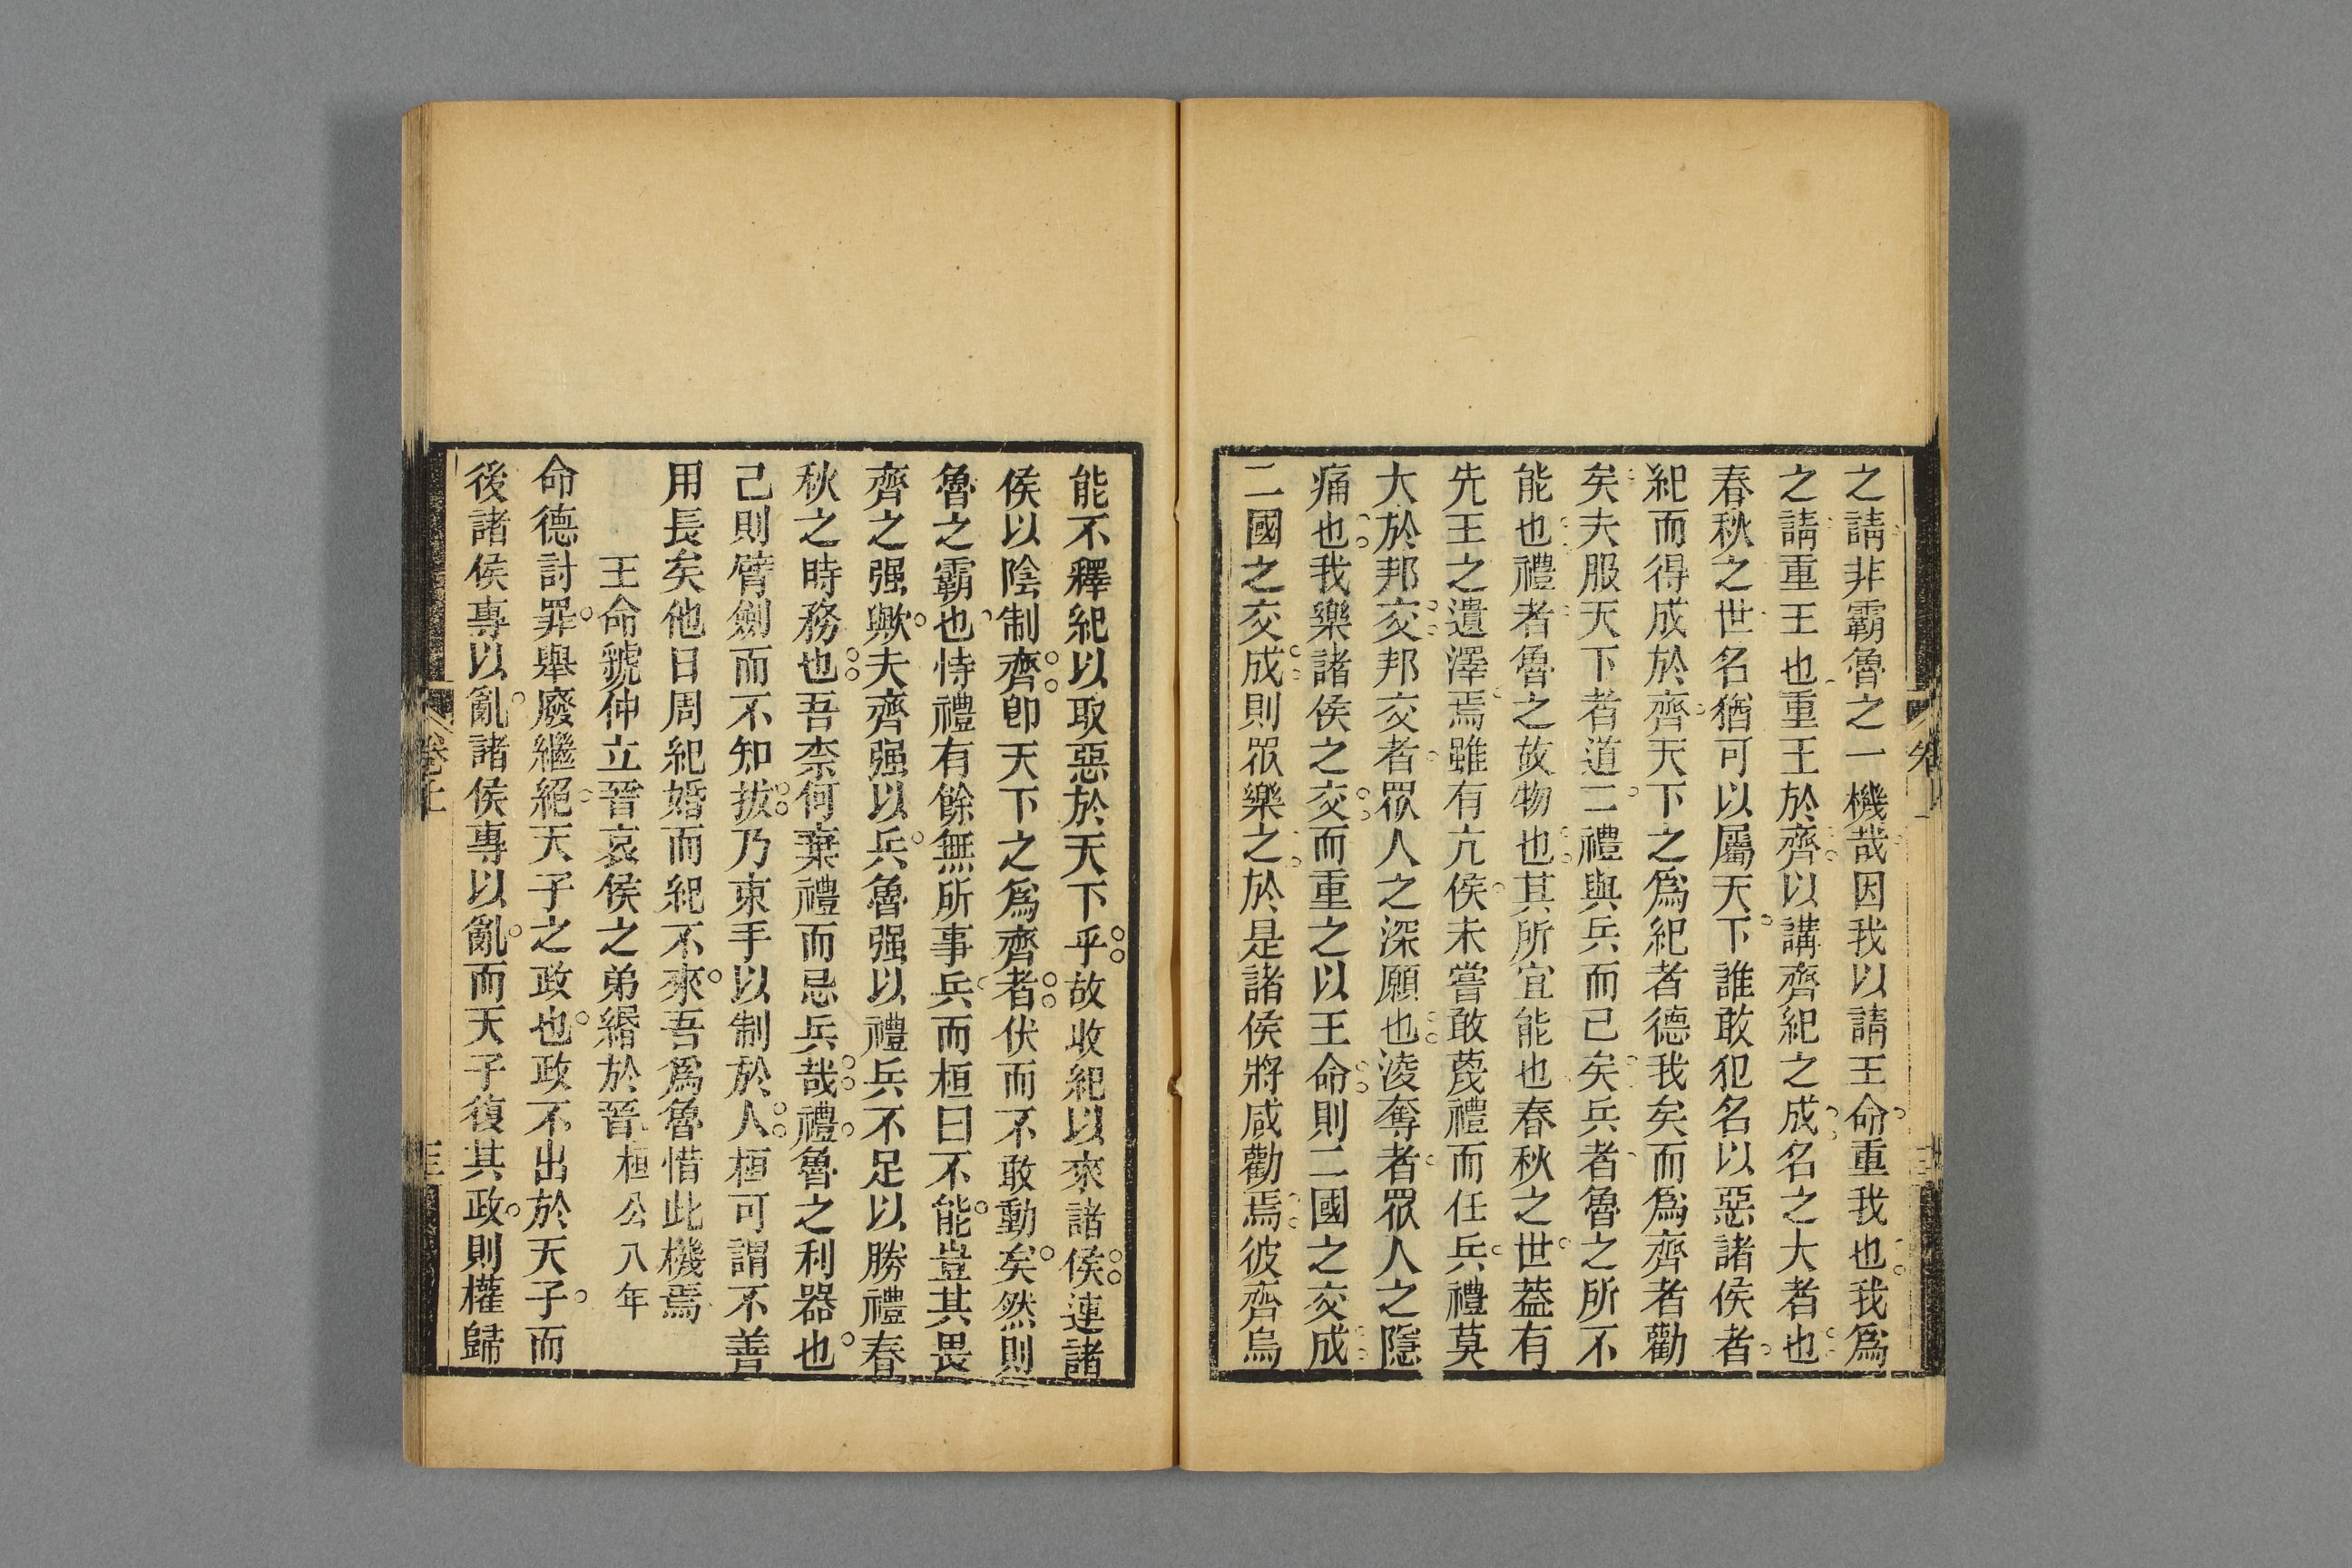 之請非霸魯之一機哉因我以請王命重我也我爲
之請重王也重王於齊以講齊紀之成名之大者也
春秋之世名猶可以屬天下誰敢犯名以惡諸侯者
紀而得成於齊天下之爲紀者德我矣而爲齊者勸
矣夫服天下者道二禮與兵而已矣兵者魯之所不
能也禮者魯之故物也其所宜能也春秋之世葢有
先王之遺澤焉雖有亢侯未嘗敢蔑禮而任兵禮莫
大於邦交邦交者眾人之深願也淩奪者眾人之隱
痛也我樂諸侯之交而重之以王命則二國之交成
二國之交成則眾樂之於是諸侯將咸勸焉彼齊烏
能不釋紀以取惡於天下乎故收紀以來諸侯連諸
侯以陰制齊卽天下之爲齊者伏而不敢動矣然則
魯之霸也恃禮有餘無所事兵而桓曰不能豈其畏
齊之强歟夫齊强以兵魯强以禮兵不足以勝禮春
秋之時務也吾柰何棄禮而忌兵哉禮魯之利器也
己則臂劍而不知拔乃束手以制於人桓可謂不善
用長矣他日周紀婚而紀不來吾爲魯惜此機焉
王命虢仲立晉哀侯之弟緡於晉桓公八年
命德討罪舉廢繼絕天子之政也政不出於天子而
後諸侯專以亂諸侯專以亂而天子復其政則權歸
卷上
三